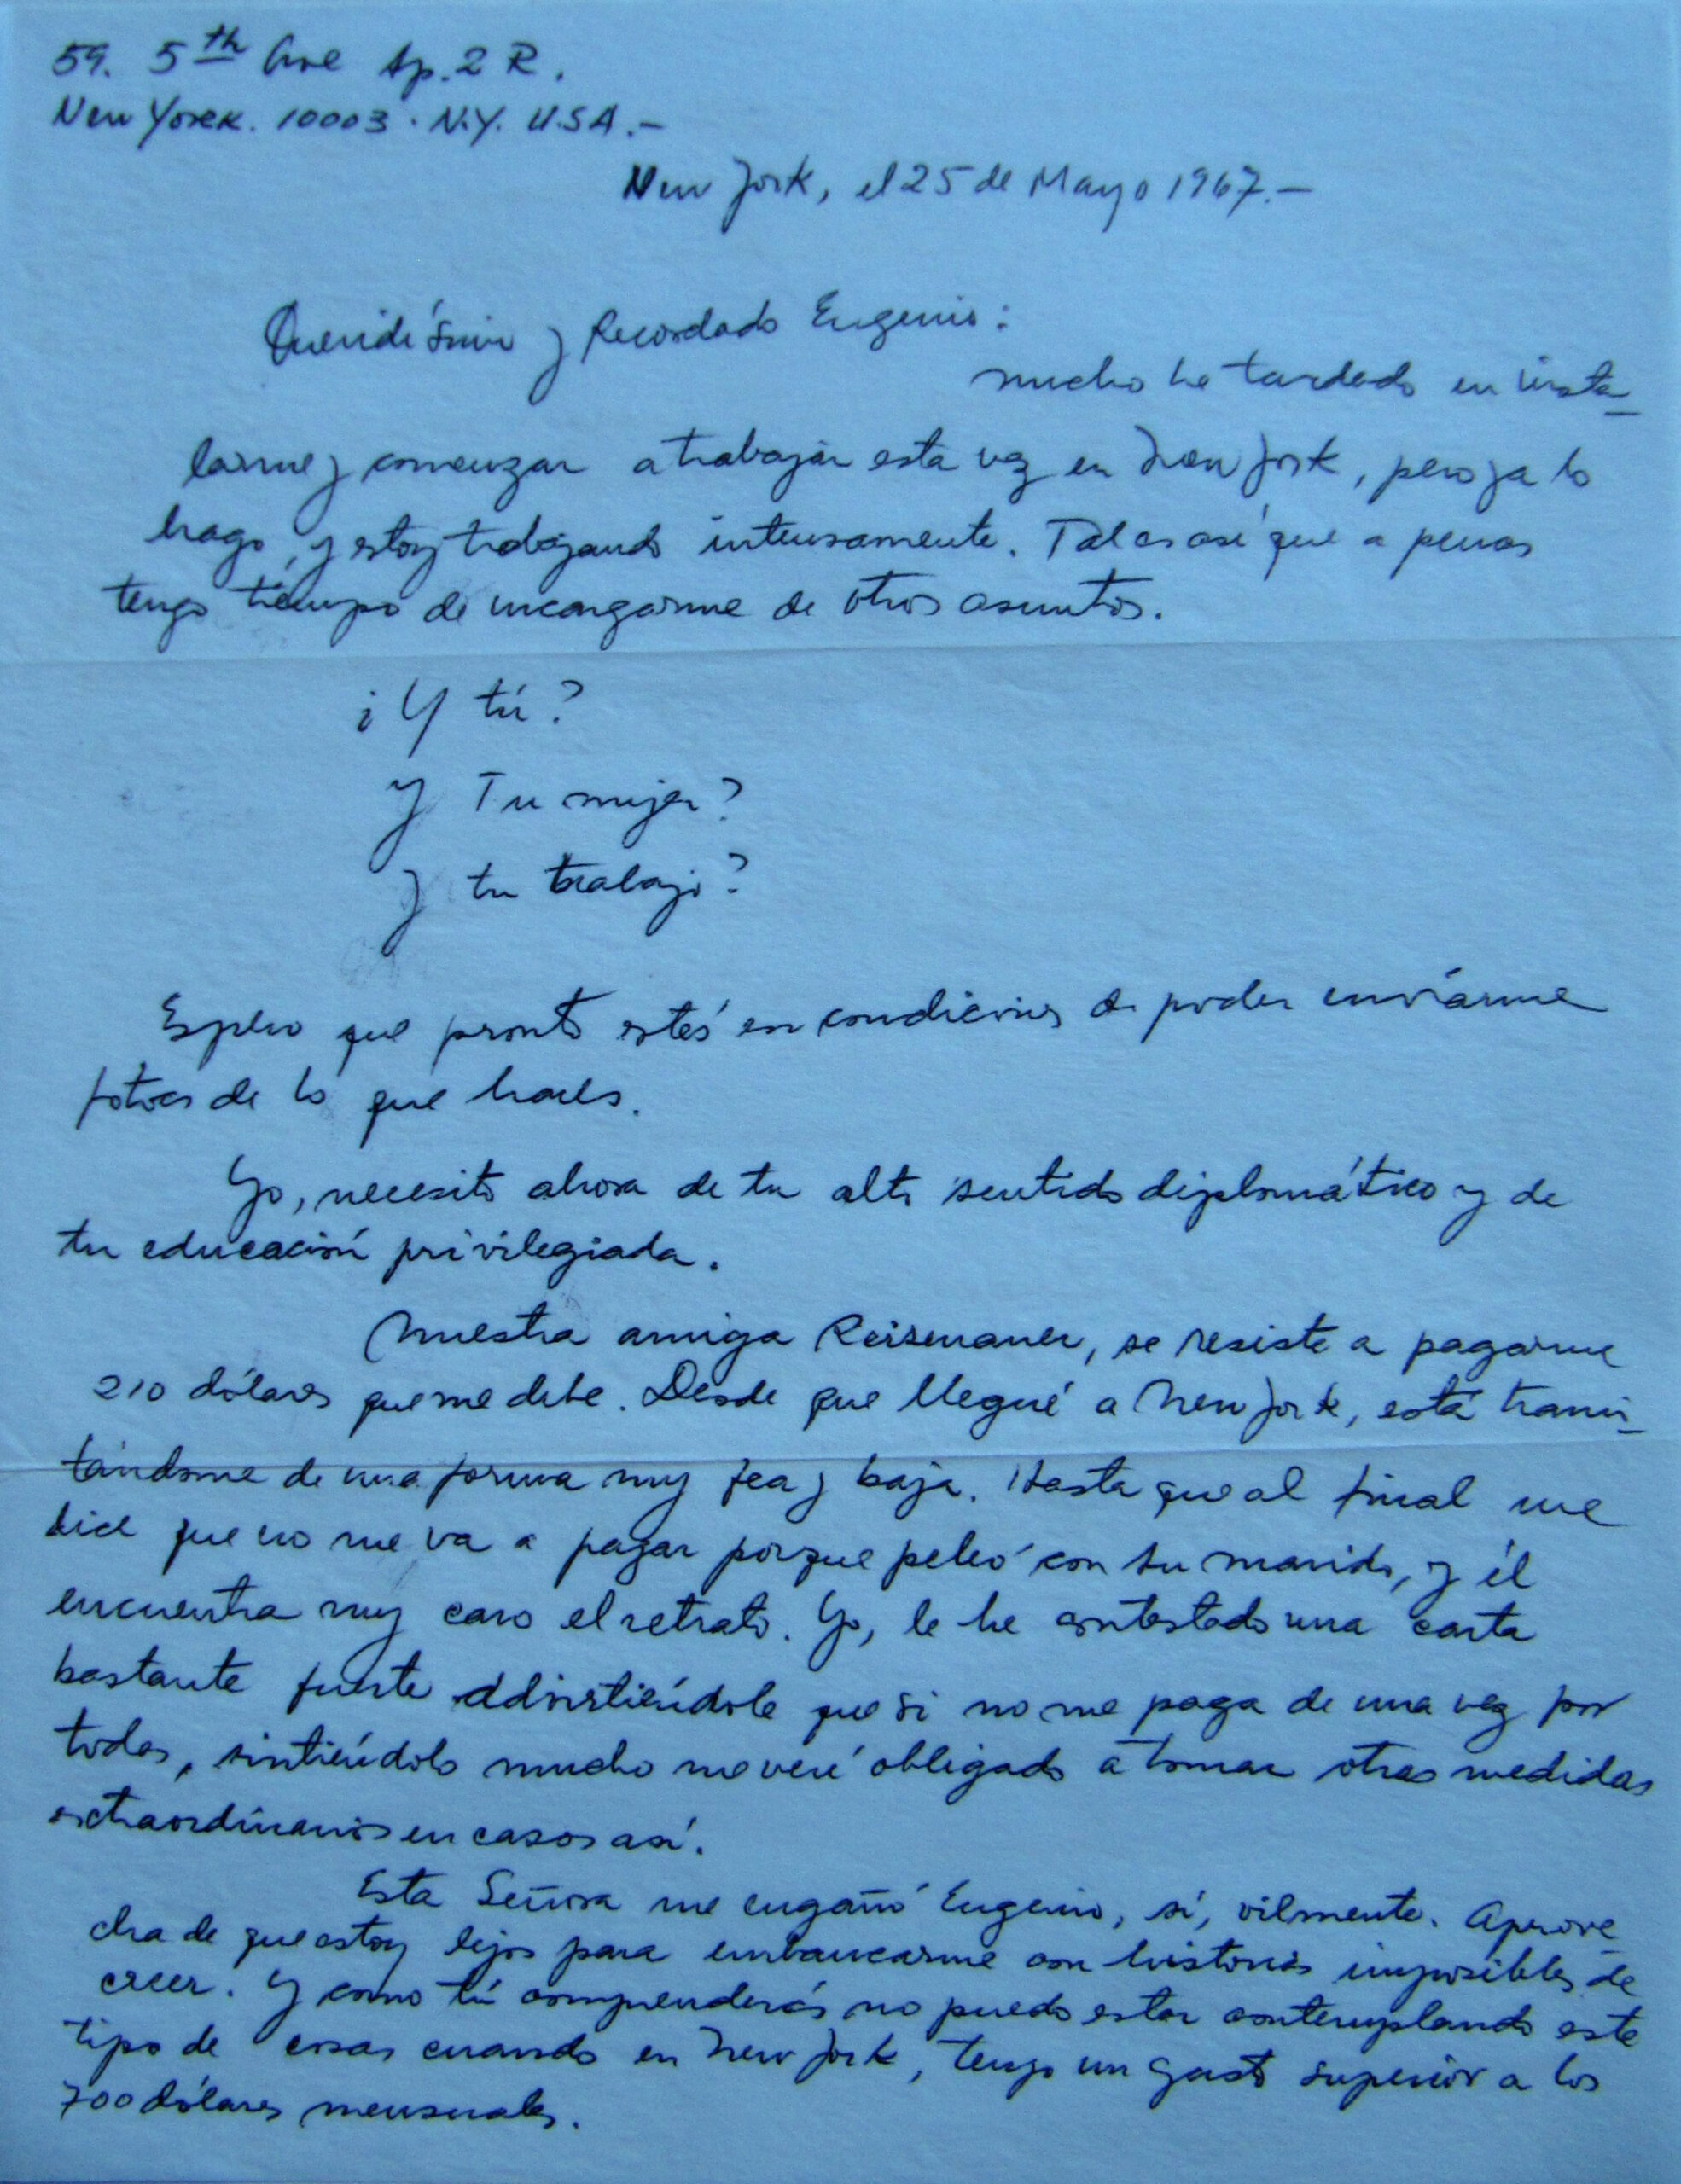 59. 5th Ave Ap. 2 R.
New Yorek. 10003. N.Y. U.S.A.-
New York, el 25 de Mayo 1967.-
Queridísimo y Recordado Eugenio:
mucho he tardado en insta-
larme y comenzar a trabajar esta vez en New York, pero ya lo
hago, y estoy trabajando intensamente. Tal es así que a penas
tengo tiempo de encargarme de otros asuntos.
¿Y tú?
y Tu mujer?
y tu trabajo?
Espero que pronto estés en condiciones de poder enviarme
fotos de lo que haces.
Yo, necesito ahora de tu alto sentido diplomático y de
tu educación privilegiada.
Nuestra amiga Reisenauer, se resiste a pagarme
210 dólares que me debe. Desde que llegué a New York, está trami-
tándome de una forma muy fea y baja. Hasta que al final me
dice que no me va a pagar porque peleó con su marido, y él
encuentra muy caro el retrato. Yo, le he contestado una carta
bastante fuerte addvirtiéndole que si no me paga de una vez por
todas, sintiéndolo mucho me veré obligado a tomar otras medidas
extraordinarios en casos así.
Esta Señora me engañó Eugenio, sí, vilmente. Aprove-
cha de que estoy lejos para embaucarme con historias imposibles de
creer. Y como tú comprenderás no puedo estar contemplando este
tipo de cosas cuando en New York, tengo un gasto superior a los
700 dólares mensuales.